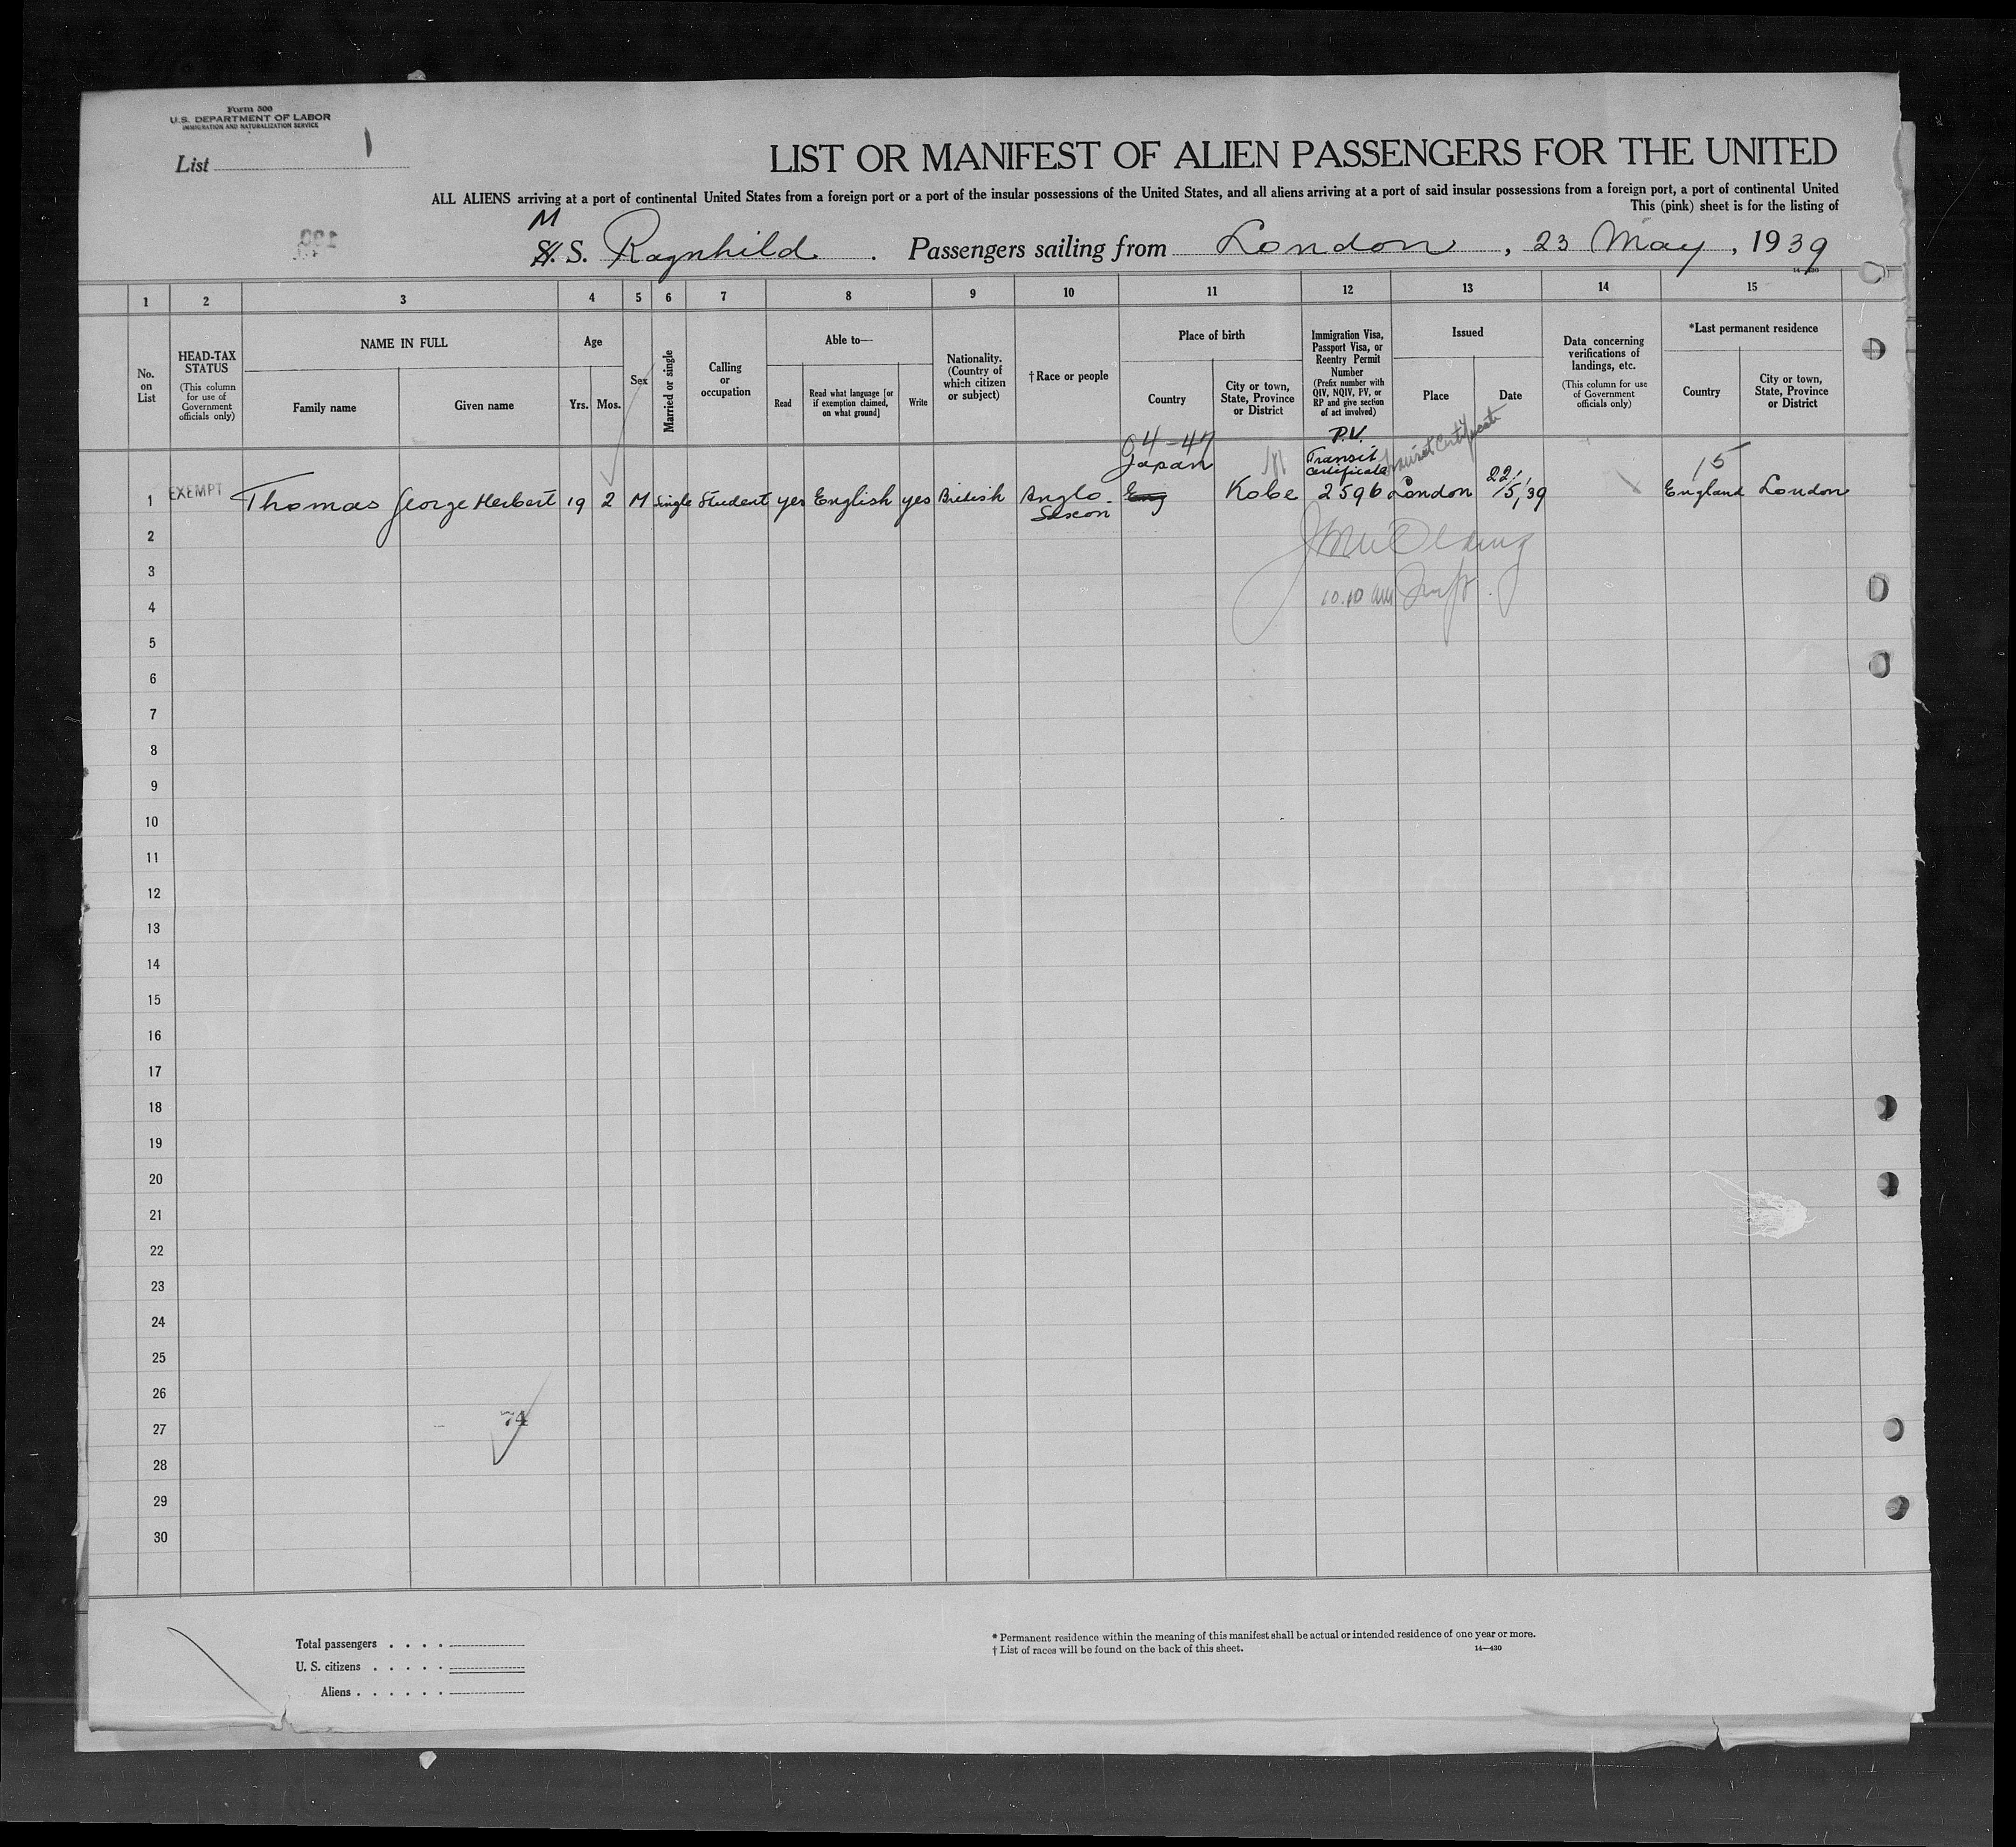 Form 500
U.S. DEPARTMENT OF LABOR
IMMIGRATION AND NATURALIZATION SERVICE
List 1
LIST OR MANIFEST OF ALIEN PASSENGERS FOR THE UNITED
ALL ALIENS arriving at a port of continental United States from a foreign port or a port of the insular possessions of the United States, and all aliens arriving at a port of said insular possessions from a foreign port, a port of continental United
This (pink) sheet is for the listing of
M
S. S. Ragnhild. Passengers sailing from London, 23 May, 1939
14-430
1 2 3 4 5 6 7 8 9 10 11 12 13 14 15
No. on List
HEAD-TAX STATUS
(This column for use of Government officials only)
NAME IN FULL
Family name Given name
Age
Yrs. Mos.
Sex
Married or single
Calling or occupation
Able to—
Read
Read what language [or if exemption claimed, on what ground]
Write
Nationality. (Country of which citizen or subject)
†Race or people
Place of birth
Country
City or town, State, Province or District
Immigration Visa, Passport Visa, or Reentry Permit Number
(Prefix number with QIV, NQIV, PV, or RP and give section of act involved)
Issued
Place Date
Data concerning verifications of landings, etc.
(This column for use of Government officials only)
*Last permanent residence
Country
City or town, State, Province or District
04-47 P.V.
Japan Transit Certificate Transit Certificate 15
1 EXEMPT Thomas George Herbert 19 2 M Single Student yes English yes British Anglo-Saxon Eng Kobe 2596 London 22/5/39 England London
2
3
4 10.10 am
5
6
7
8
9
10
11
12
13
14
15
16
17
18
19
20
21
22
23
24
25
26
27 74
28
29
30
Total passengers . . . .
U. S. citizens . . . . .
Aliens . . . . . .
* Permanent residence within the meaning of this manifest shall be actual or intended residence of one year or more.
† List of races will be found on the back of this sheet. 14—430